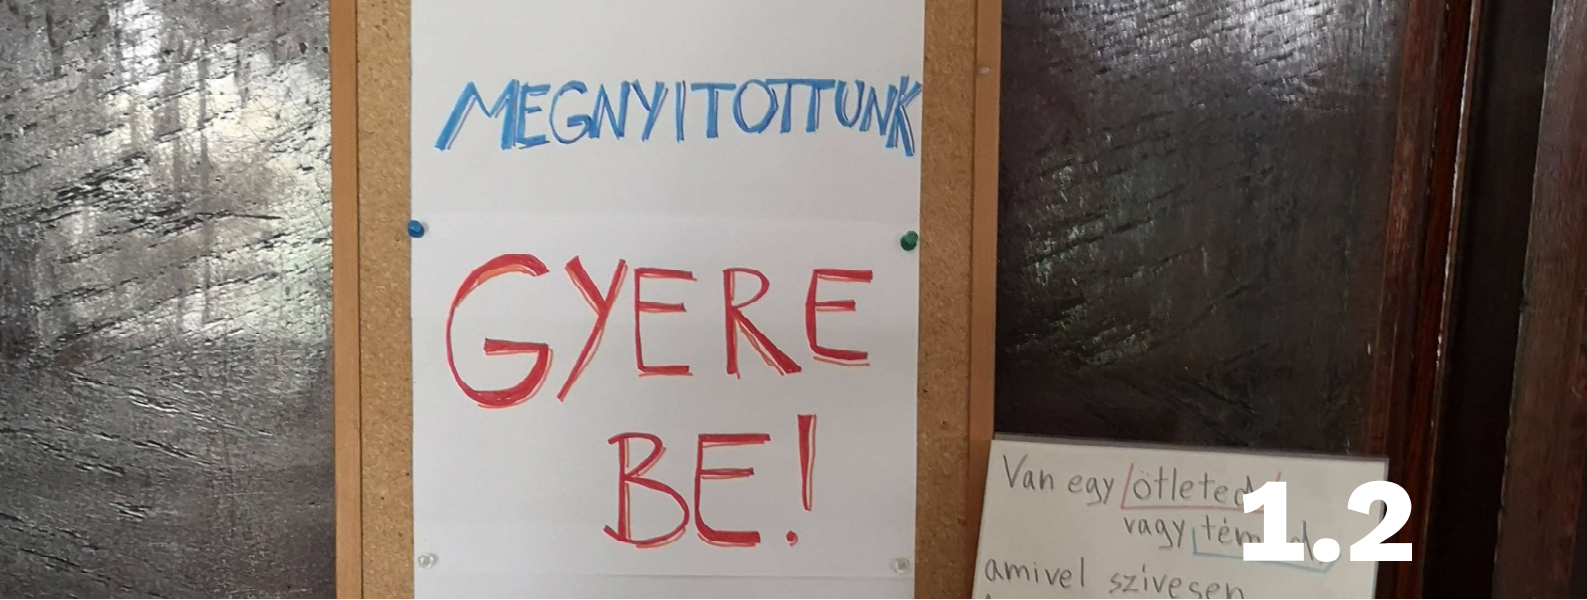 MEGNYITOTTUNK
GYERE
BE!
Van egy ötleted
vagy
amivel szívesen
1.2